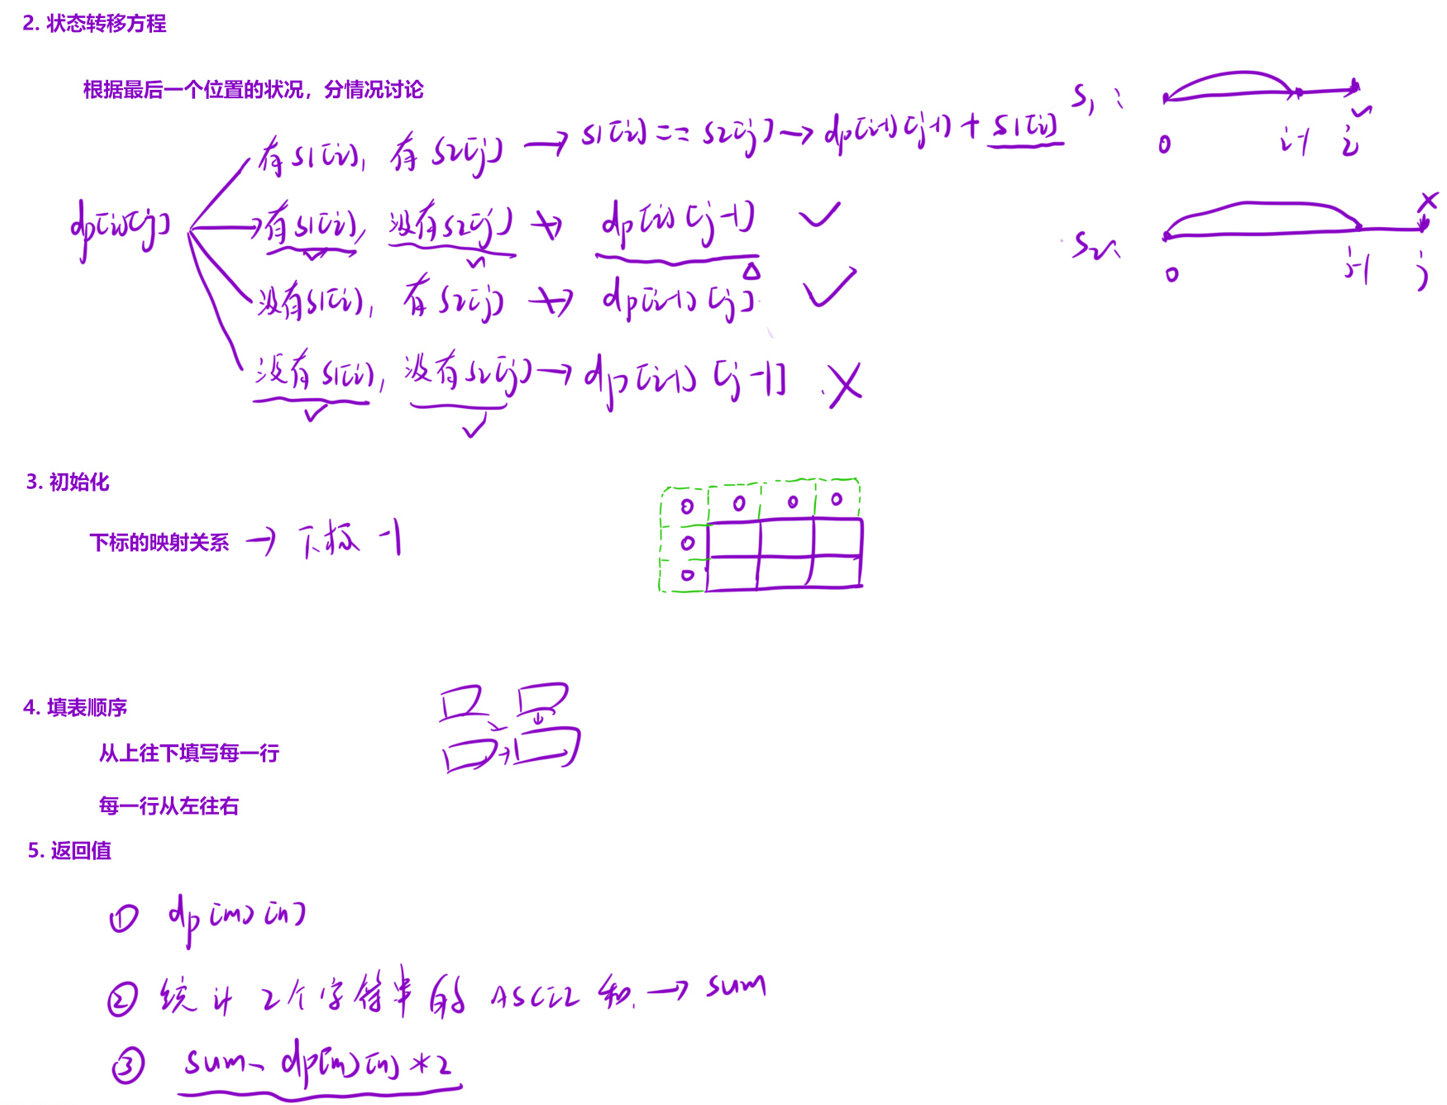 2. 状态转移方程
根据最后一个位置的状况，分情况讨论
dp[i][j]
有s1[i], 有s2[j] → s1[i] == s2[j] → dp[i-1][j-1] + s1[i]
有s1[i], 没有s2[j] → dp[i][j-1] ✓
没有s1[i], 有s2[j] → dp[i-1][j] ✓
没有s1[i], 没有s2[j] → dp[i-1][j-1] ×
s1:
0 i-1 i
s2:
0 j-1 j
3. 初始化
下标的映射关系 → 下标 -1
0 0 0 0
0
0
4. 填表顺序
从上往下填写每一行
每一行从左往右
5. 返回值
① dp[m][n]
② 统计2个字符串的ASCII和 → sum
③ sum - dp[m][n] * 2